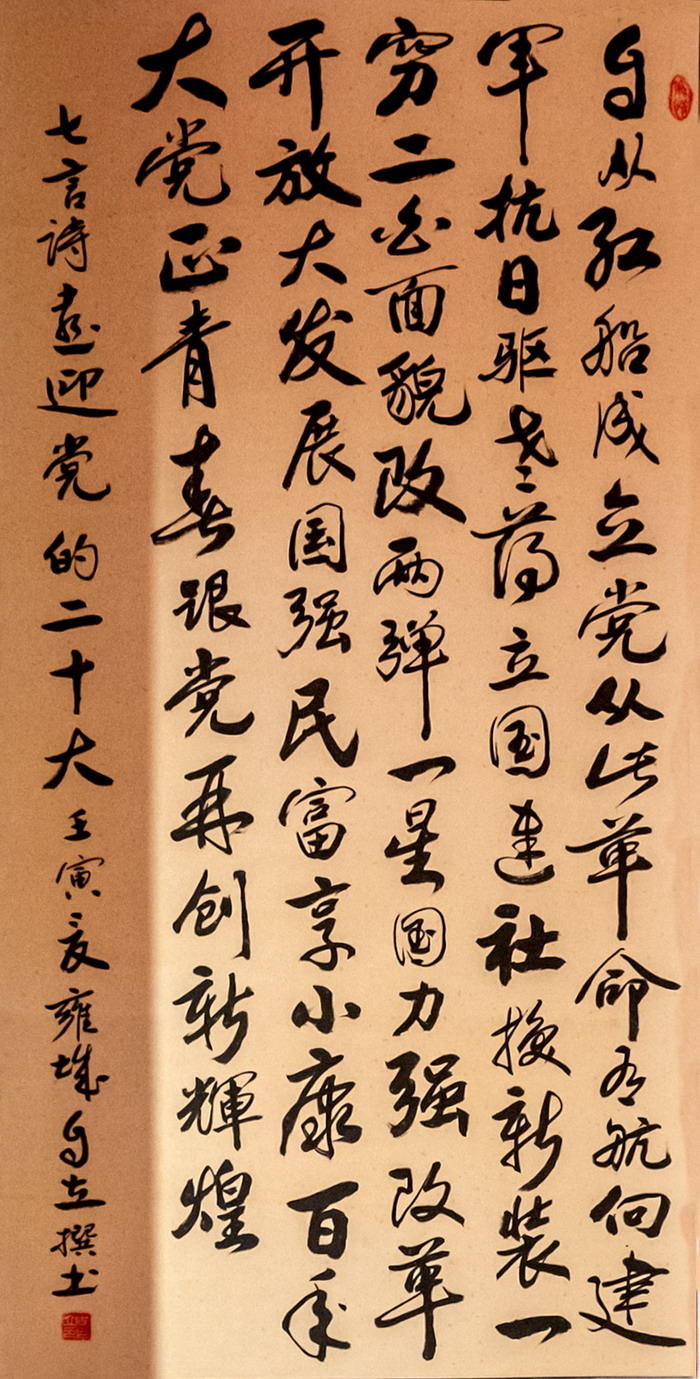 自从红船成立党从此革命有航向建
军抗日驱老蒋立国建社换新装一
穷二白面貌改两弹一星国力强改革
开放大发展国强民富享小康百年
大党正青春跟党再创新輝煌
七言詩喜迎党的二十大壬寅夏雍城自立撰书